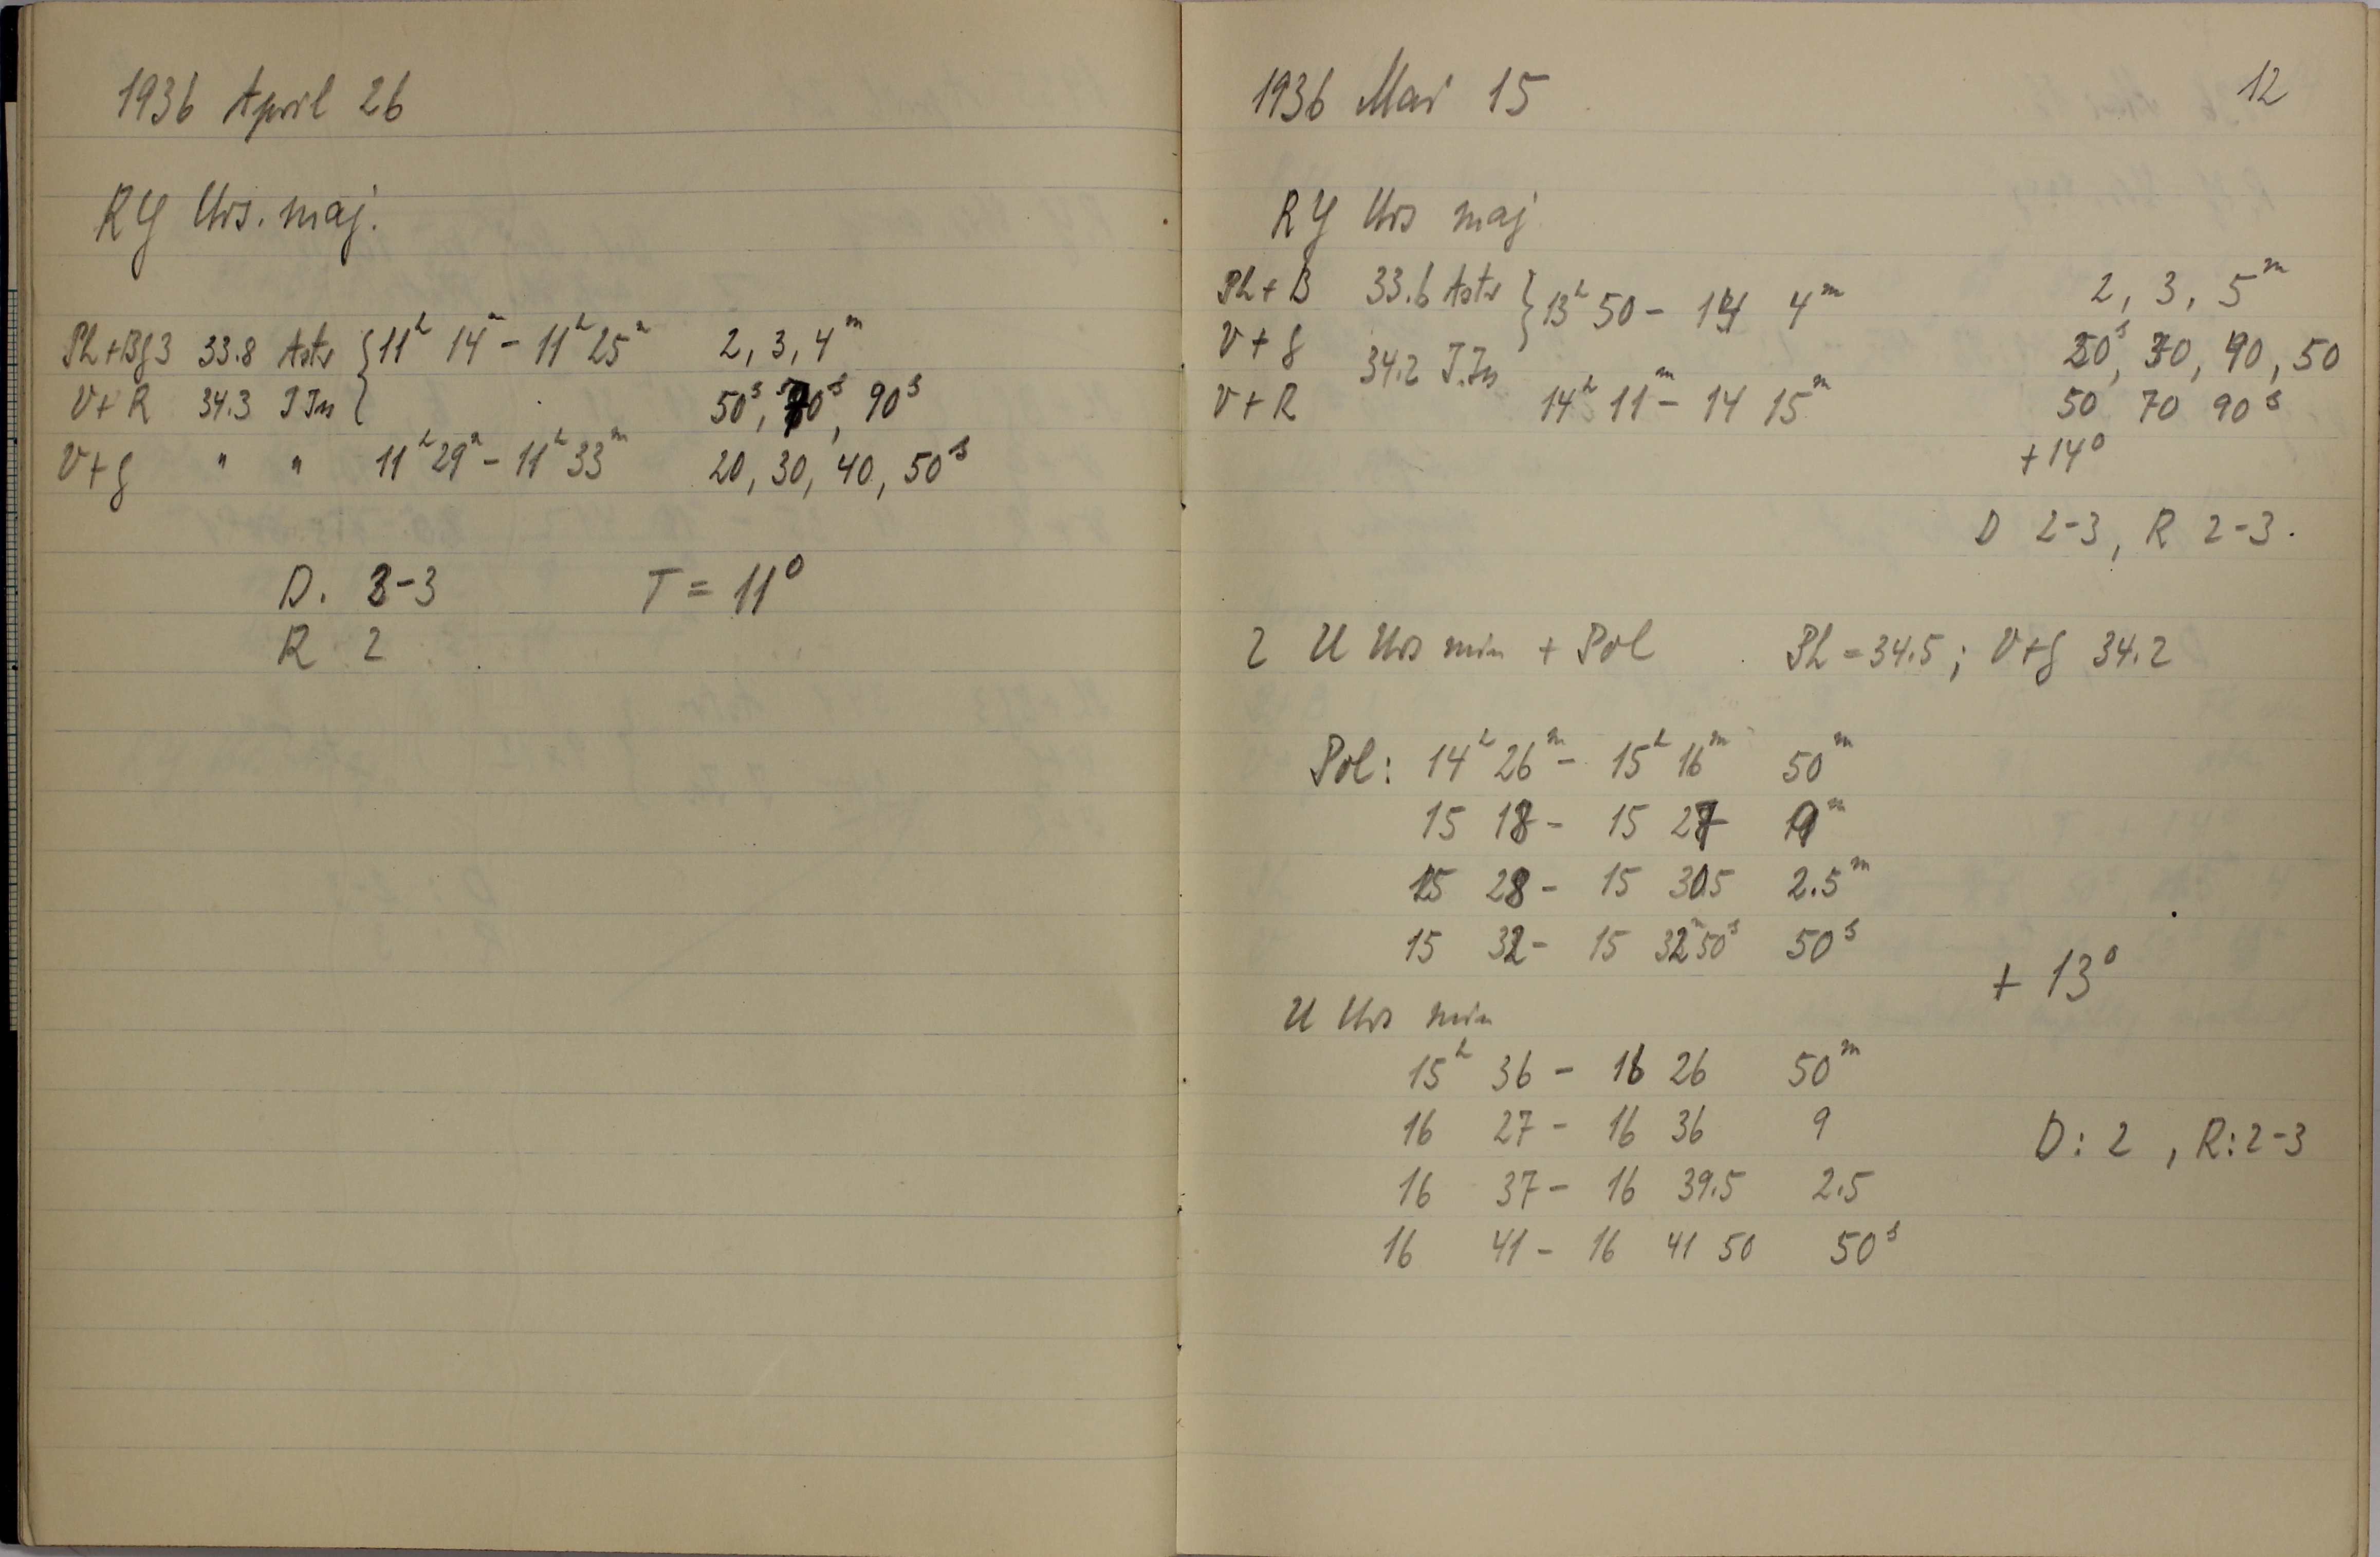 1936 April 26
RY Urs. maj.
Ph+Bg3 33.8 Astr } 11h 14m - 11h 25m 2, 3, 4m
V+R 34.3 J Jn 50s, 70s, 90s
V+g " " 11h 29m - 11h 33m 20, 30, 40, 50s
D. 2-3 T = 11°
R 2
12
1936 Mai 15
RY Urs maj
Ph+B 33.6 Astr } 13h 50 - 14 4m 2, 3, 5m
V+g 34.2 J.Jn 20s, 30, 40, 50
V+R 14h 11m - 14 15m 50 70 90s
+14°
D 2-3, R 2-3.
2 U Urs min + Pol Ph = 34.5; V+g 34.2
Pol: 14h 26m - 15h 16m 50m
15 18 - 15 27 9m
15 28 - 15 30.5 2.5m
15 32 - 15 32m 50s 50s
+ 13°
U Urs min
15h 36 - 16 26 50m
16 27 - 16 36 9
D: 2, R: 2-3
16 37 - 16 39.5 2.5
16 41 - 16 41 50 50s